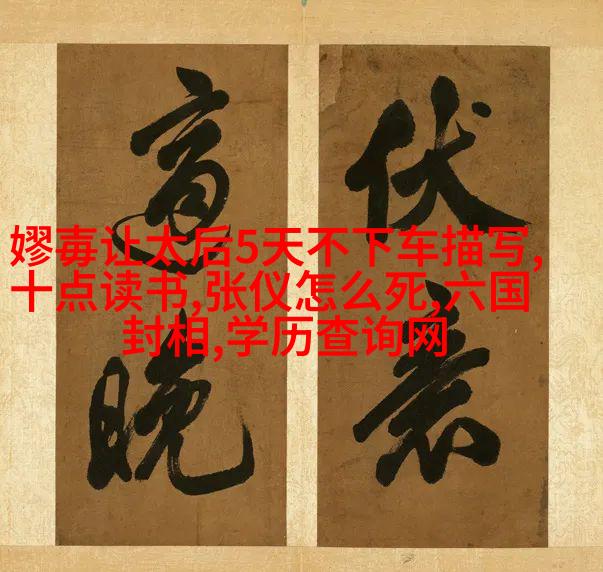 嫪毐让太后5天不下车描写,
十点读书,张仪怎么死,六国
封相,学历查询网
伏
晚